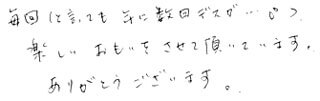 毎回(と言っても年に数回デスガ…。)
楽しいおもいをさせて頂いています。
ありがとうございます。